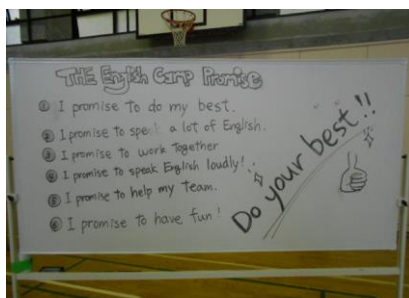 THE English Camp Promise
① I promise to do my best.
② I promise to speak a lot of English.
③ I promise to work Together
④ I promise to speak English loudly!
⑤ I promise to help my team.
⑥ I promise to have fun!
Do your best!!